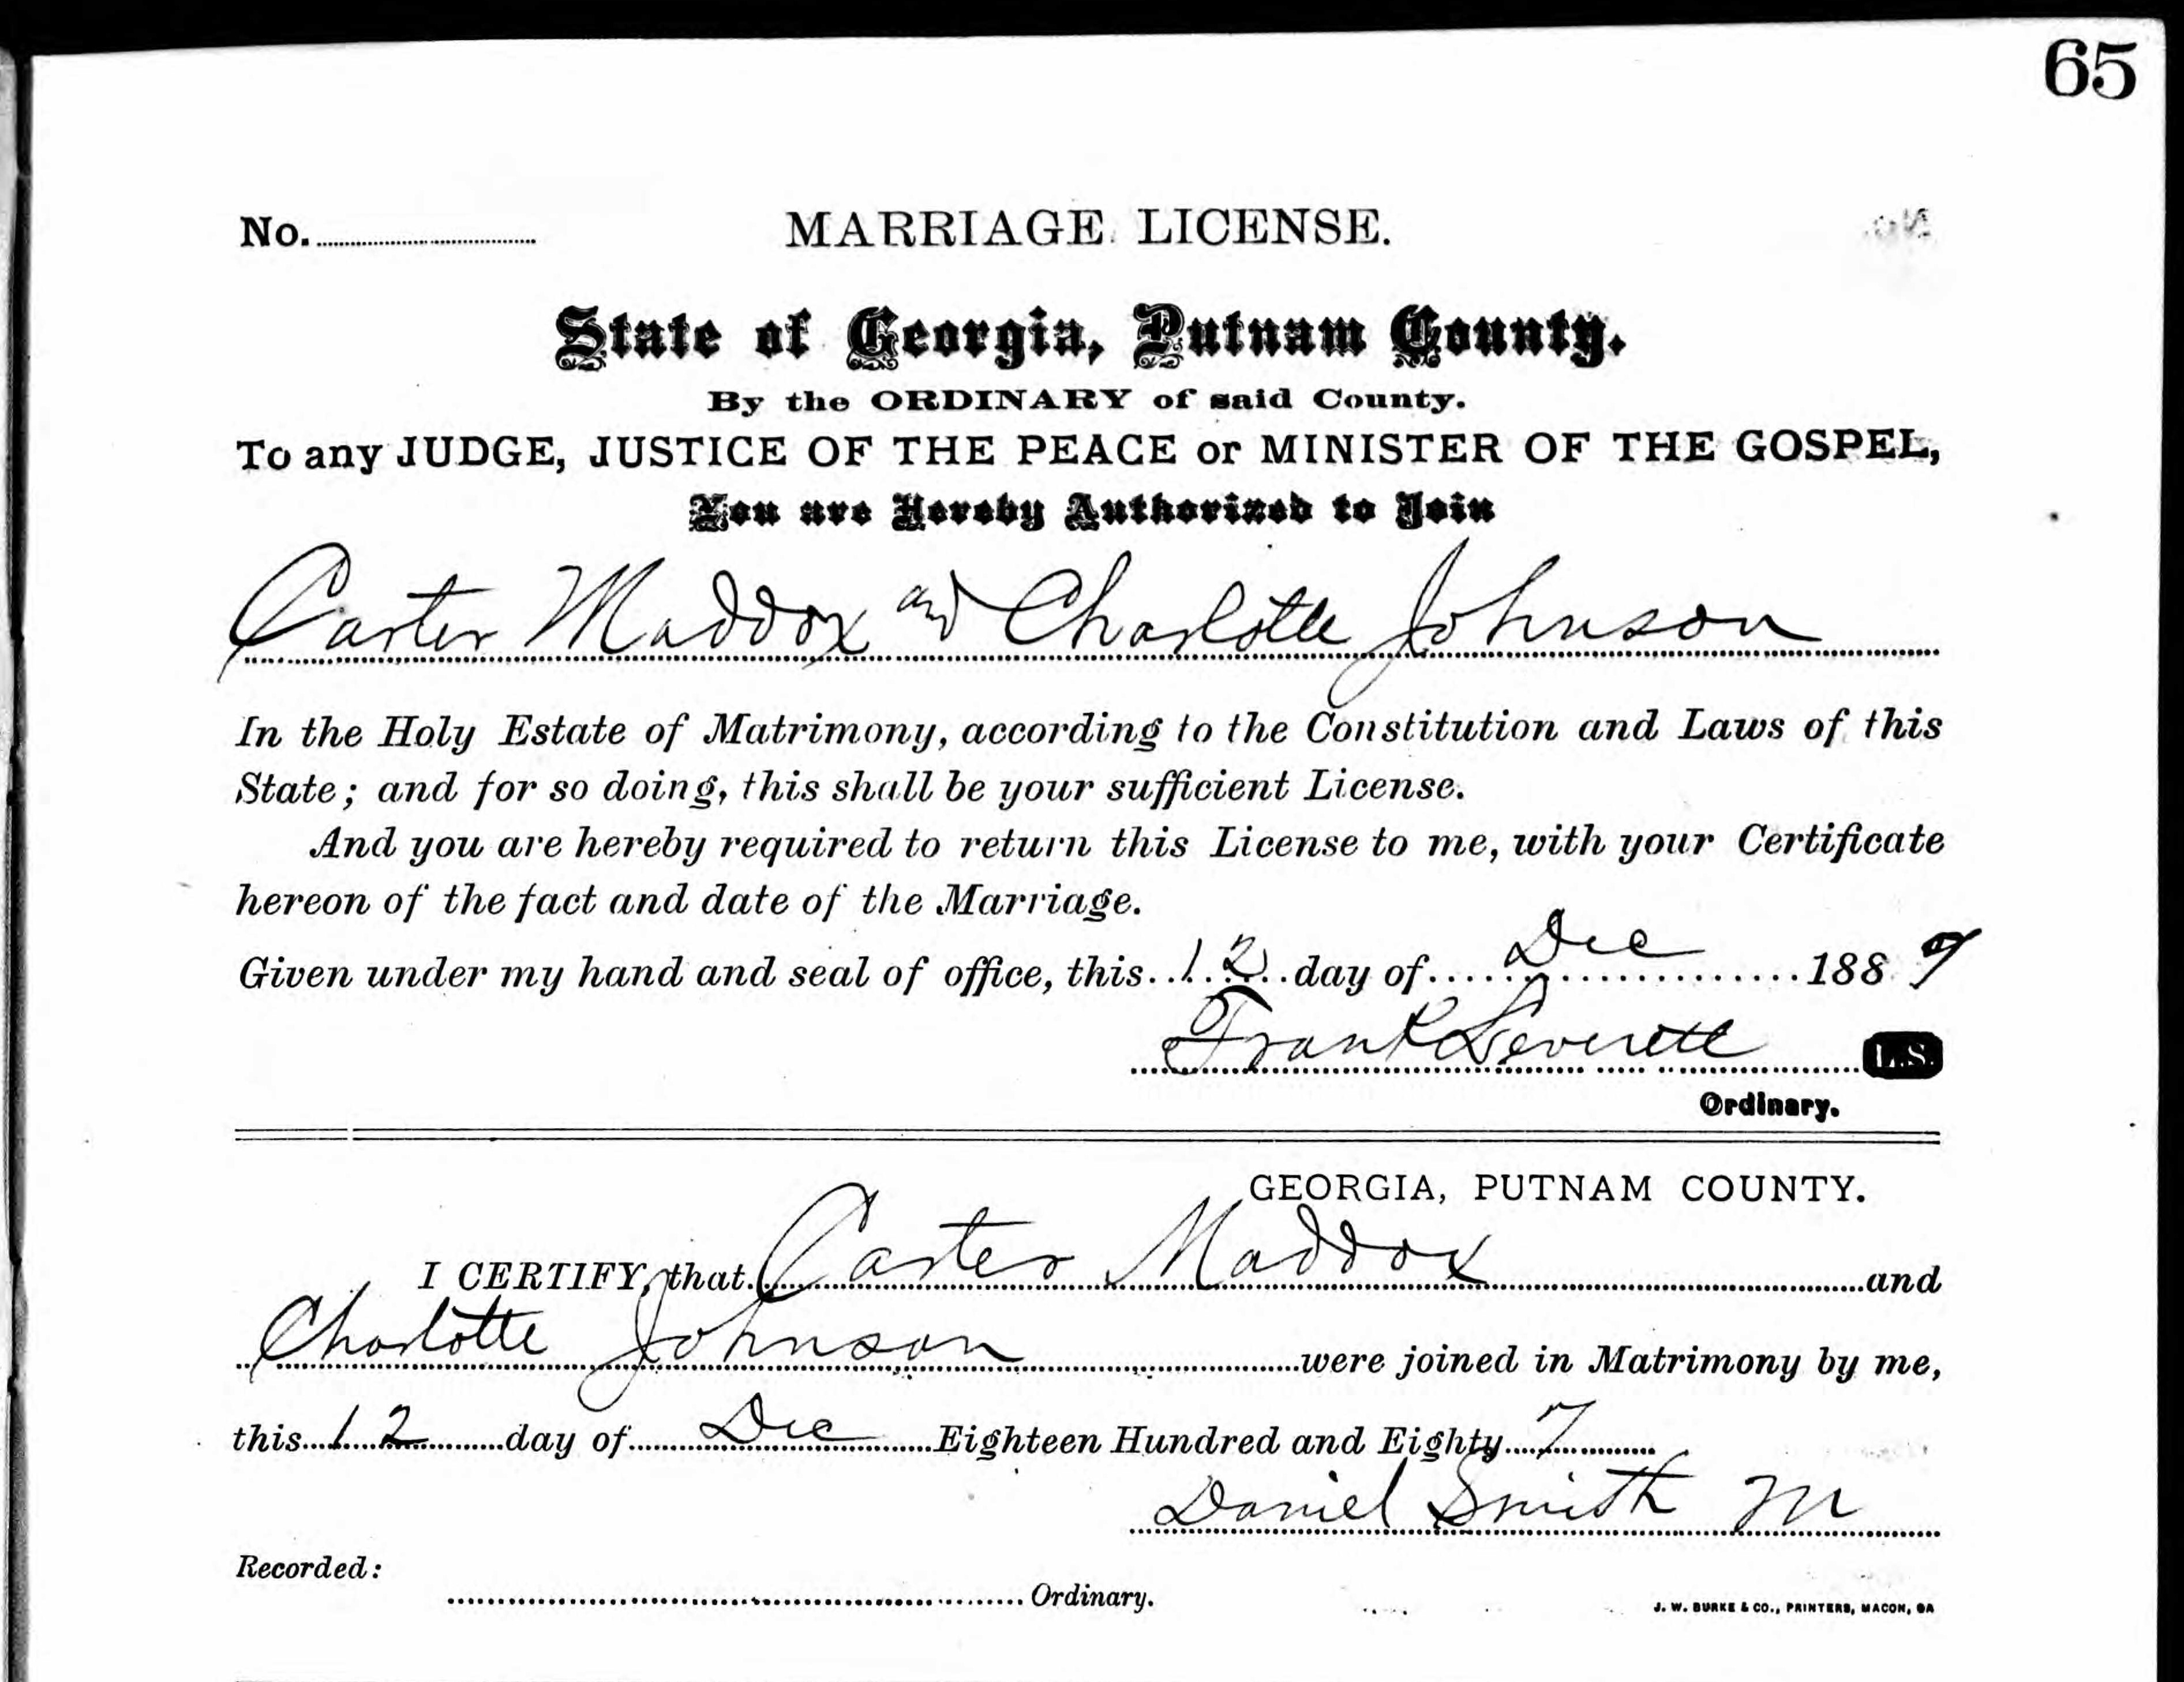 65
No. MARRIAGE LICENSE.
State of Georgia, Putnam County.
By the ORDINARY of said County.
To any JUDGE, JUSTICE OF THE PEACE or MINISTER OF THE GOSPEL,
You are Hereby Authorized to Join
Carter Maddox and Charlotte Johnson
In the Holy Estate of Matrimony, according to the Constitution and Laws of this
State; and for so doing, this shall be your sufficient License.
And you are hereby required to return this License to me, with your Certificate
hereon of the fact and date of the Marriage.
Given under my hand and seal of office, this 12 day of Dec 1887
Frank Leverett L.S.
Ordinary.
GEORGIA, PUTNAM COUNTY.
I CERTIFY, that Carter Maddox and
Charlotte Johnson were joined in Matrimony by me,
this 12 day of Dec Eighteen Hundred and Eighty 7
Daniel Smith M
Recorded:
Ordinary.
J. W. BURKE & CO., PRINTERS, MACON, GA